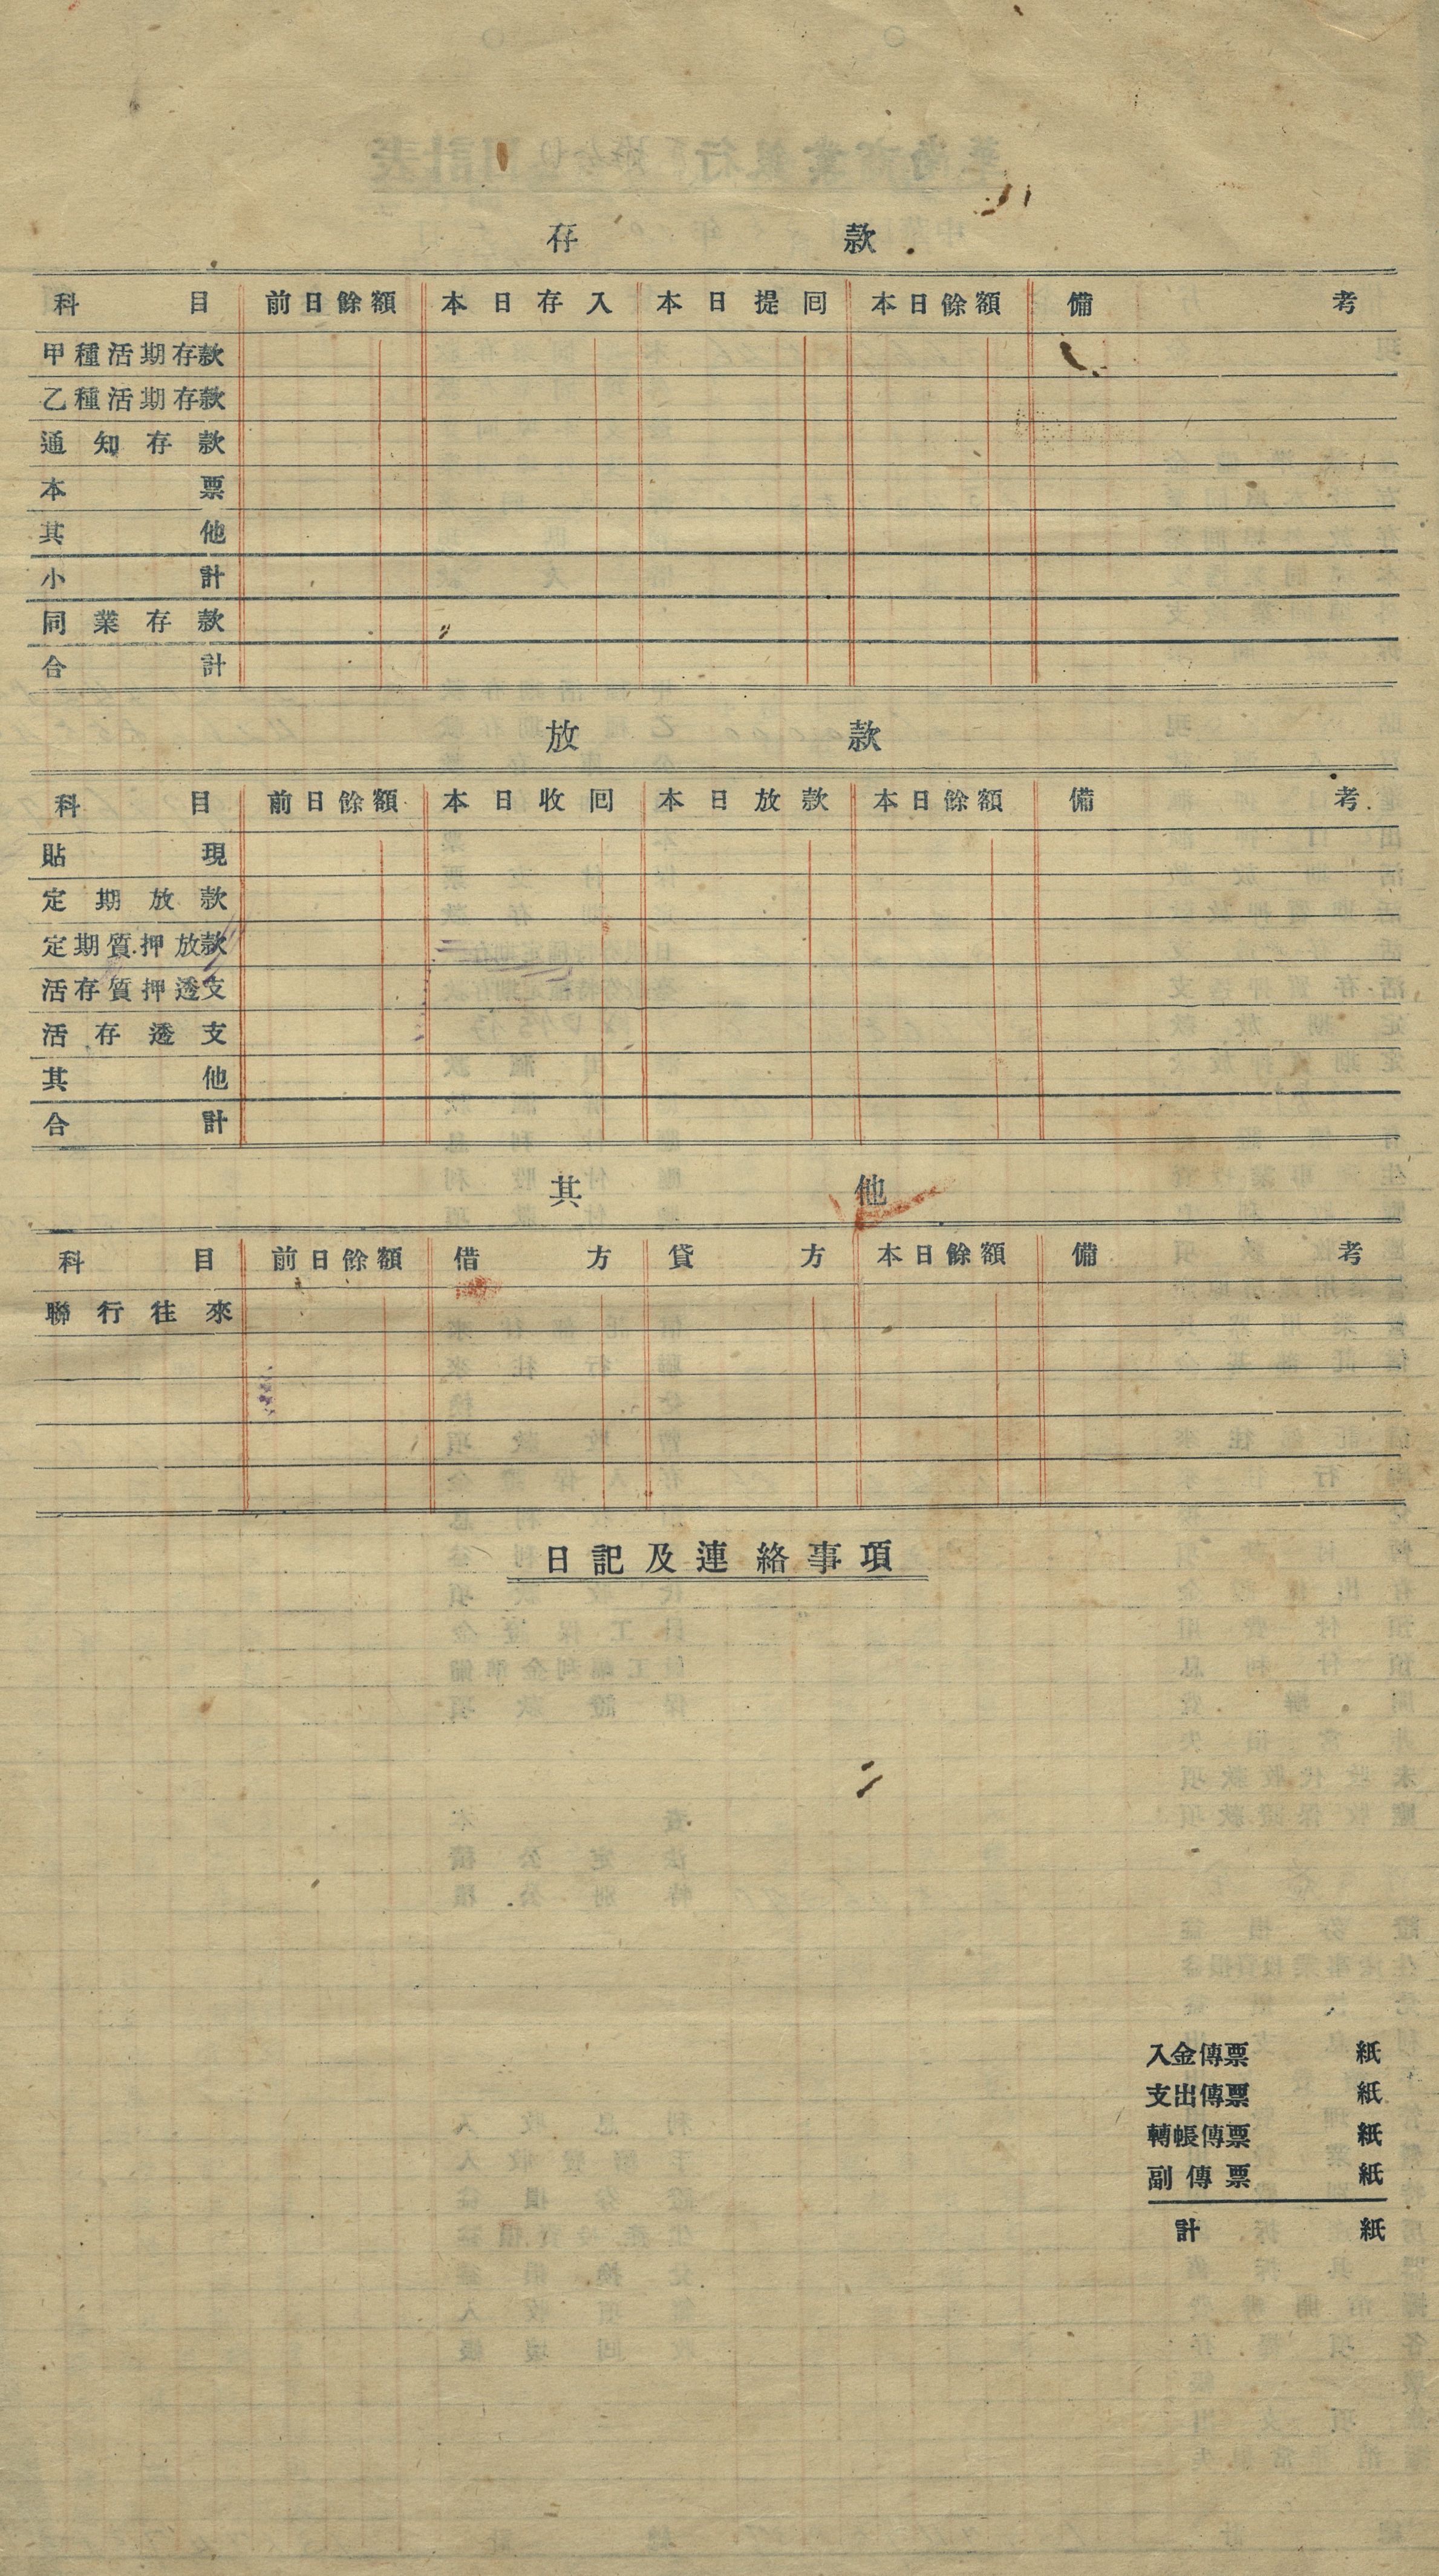 存款
科目 前日餘額 本日存入 本日提囘 本日餘額 備考
甲種活期存款
乙種活期存款
通知存款
本票
其他
小計
同業存款
合計
放款
科目 前日餘額 本日收囘 本日放款 本日餘額 備考
貼現
定期放款
定期質押放款
活存質押透支
活存透支
其他
合計
其他
科目 前日餘額 借方 貸方 本日餘額 備考
聯行往來
日記及連絡事項
入金傳票 紙
支出傳票 紙
轉帳傳票 紙
副傳票 紙
計 紙